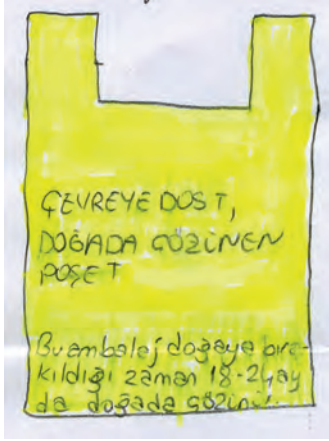 ÇEVREYE DOST,
DOĞADA ÇÖZÜNEN
POŞET
Bu ambalaj doğaya bıra-
kıldığı zaman 18-24 ay
da doğada çözünür.